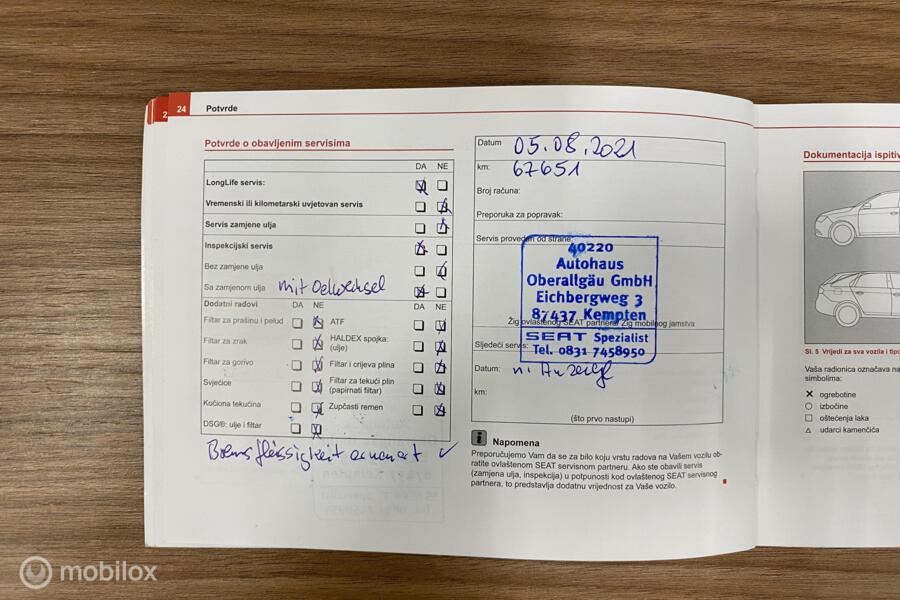 2 24 Potvrde
Potvrde o obavljenim servisima
DA NE
LongLife servis:
Vremenski ili kilometarski uvjetovan servis
Servis zamjene ulja
Inspekcijski servis
Bez zamjene ulja
Sa zamjenom ulja mit Oelwechsel
Dodatni radovi DA NE DA NE
Filtar za prašinu i pelud ATF
Filtar za zrak HALDEX spojka:
(ulje)
Filtar za gorivo Filtar i crijeva plina
Svjećice Filtar za tekući plin
(papirnati filtar)
Kočiona tekućina Zupčasti remen
DSG®: ulje i filtar
Bremsflüssigkeit erneuert ✓
Datum 05.08.2021
km: 67651
Broj računa:
Preporuka za popravak:
Servis proveden od strane:
40220
Autohaus
Oberallgäu GmbH
Eichbergweg 3
87437 Kempten
Žig ovlaštenog SEAT partnera/ Žig mobilnog jamstva
SEAT Spezialist
Tel. 0831 7458950
Sljedeći servis:
Datum: n. Anzeige
km:
(što prvo nastupi)
i Napomena
Preporučujemo Vam da se za bilo koju vrstu radova na Vašem vozilu ob-
ratite ovlaštenom SEAT servisnom partneru. Ako ste obavili servis
(zamjena ulja, inspekcija) u potpunosti kod ovlaštenog SEAT servisnog
partnera, to predstavlja dodatnu vrijednost za Vaše vozilo.
Dokumentacija ispitiv
Sl. 5 Vrijedi za sva vozila i tipo
Vaša radionica označava na
simbolima:
ogrebotine
izbočine
oštećenja laka
udarci kamenčića
mobilox